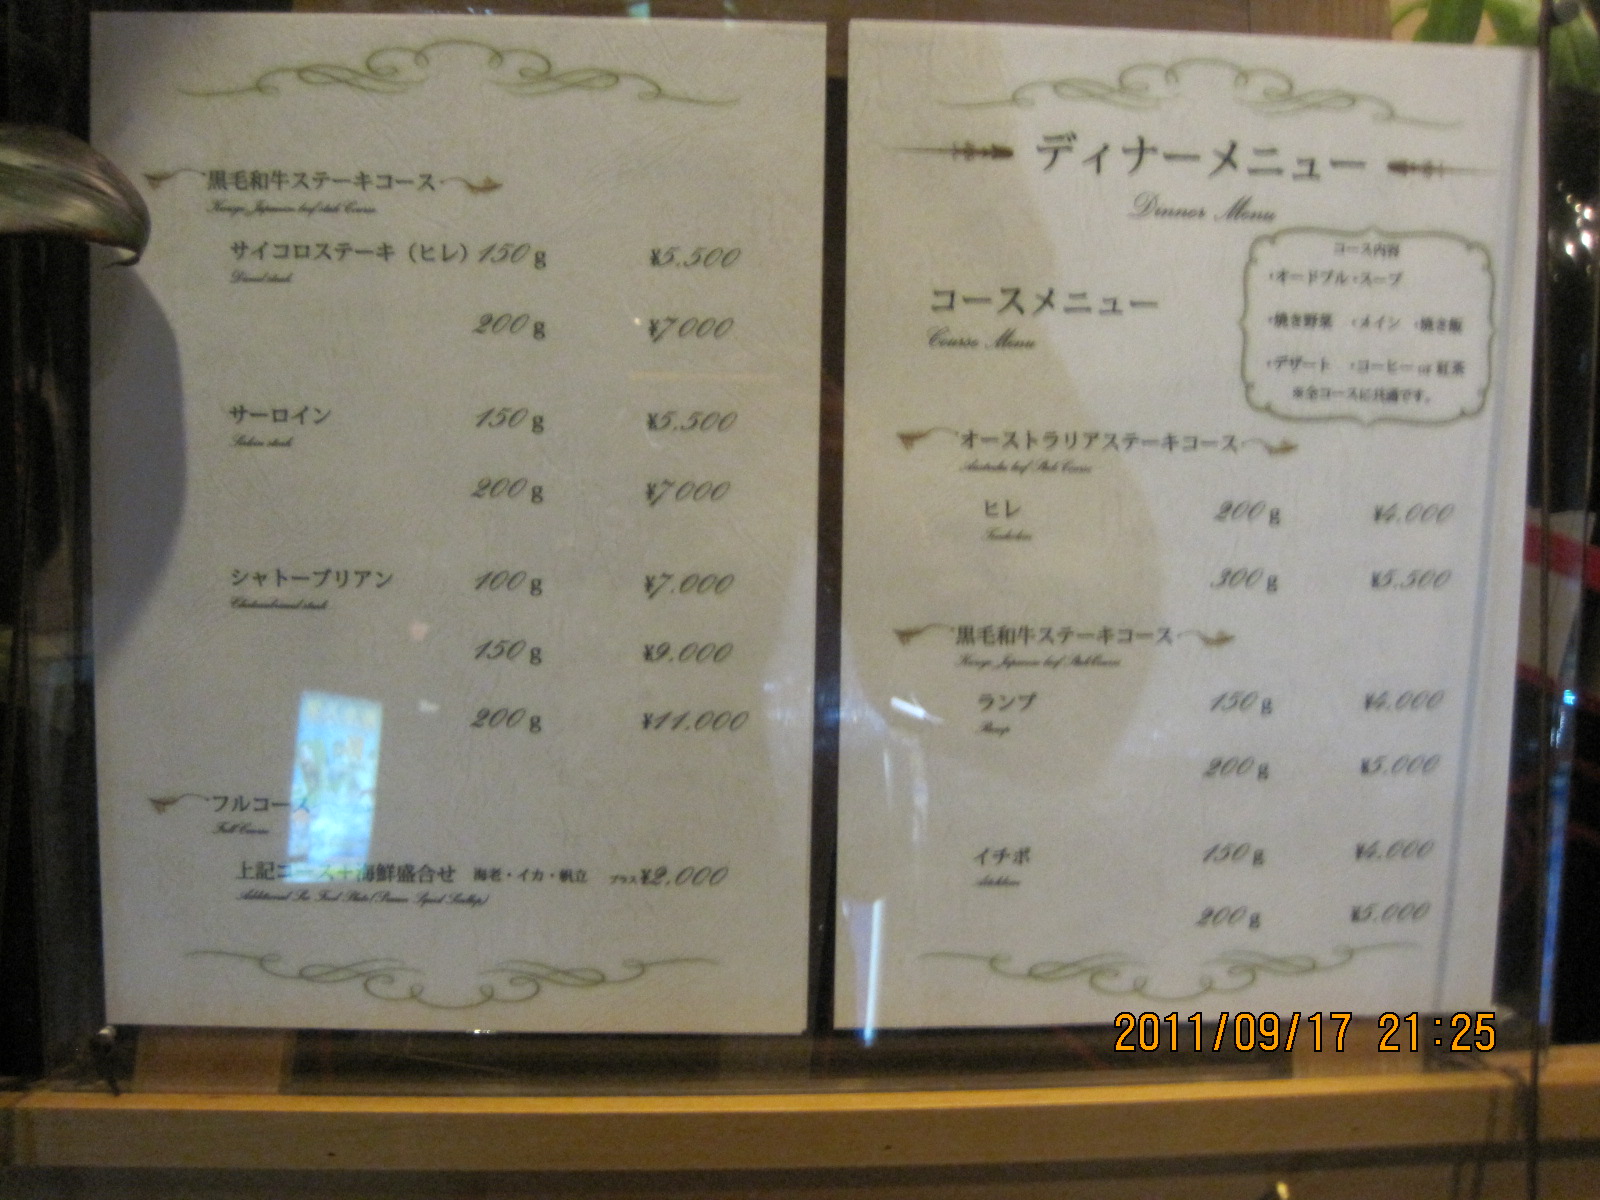 黒毛和牛ステーキコース
サイコロステーキ（ヒレ）150g ¥5.500
200g ¥7000
サーロイン 150g ¥5.500
200g ¥7000
シャトーブリアン 100g ¥7.000
150g ¥9.000
200g ¥11.000
フルコース
Full Course
上記コース+海鮮盛合せ 海老・イカ・帆立 プラス¥2.000
ディナーメニュー
Dinner Menu
コース内容
・オードブル・スープ
・焼き野菜 ・メイン ・焼き飯
・デザート ・コーヒー or 紅茶
※全コースに共通です。
コースメニュー
Course Menu
オーストラリアステーキコース
ヒレ 200g ¥4.000
300g ¥5.500
黒毛和牛ステーキコース
ランプ 150g ¥4.000
Rump
200g ¥5.000
イチボ 150g ¥4.000
200g ¥5.000
2011/09/17 21:25